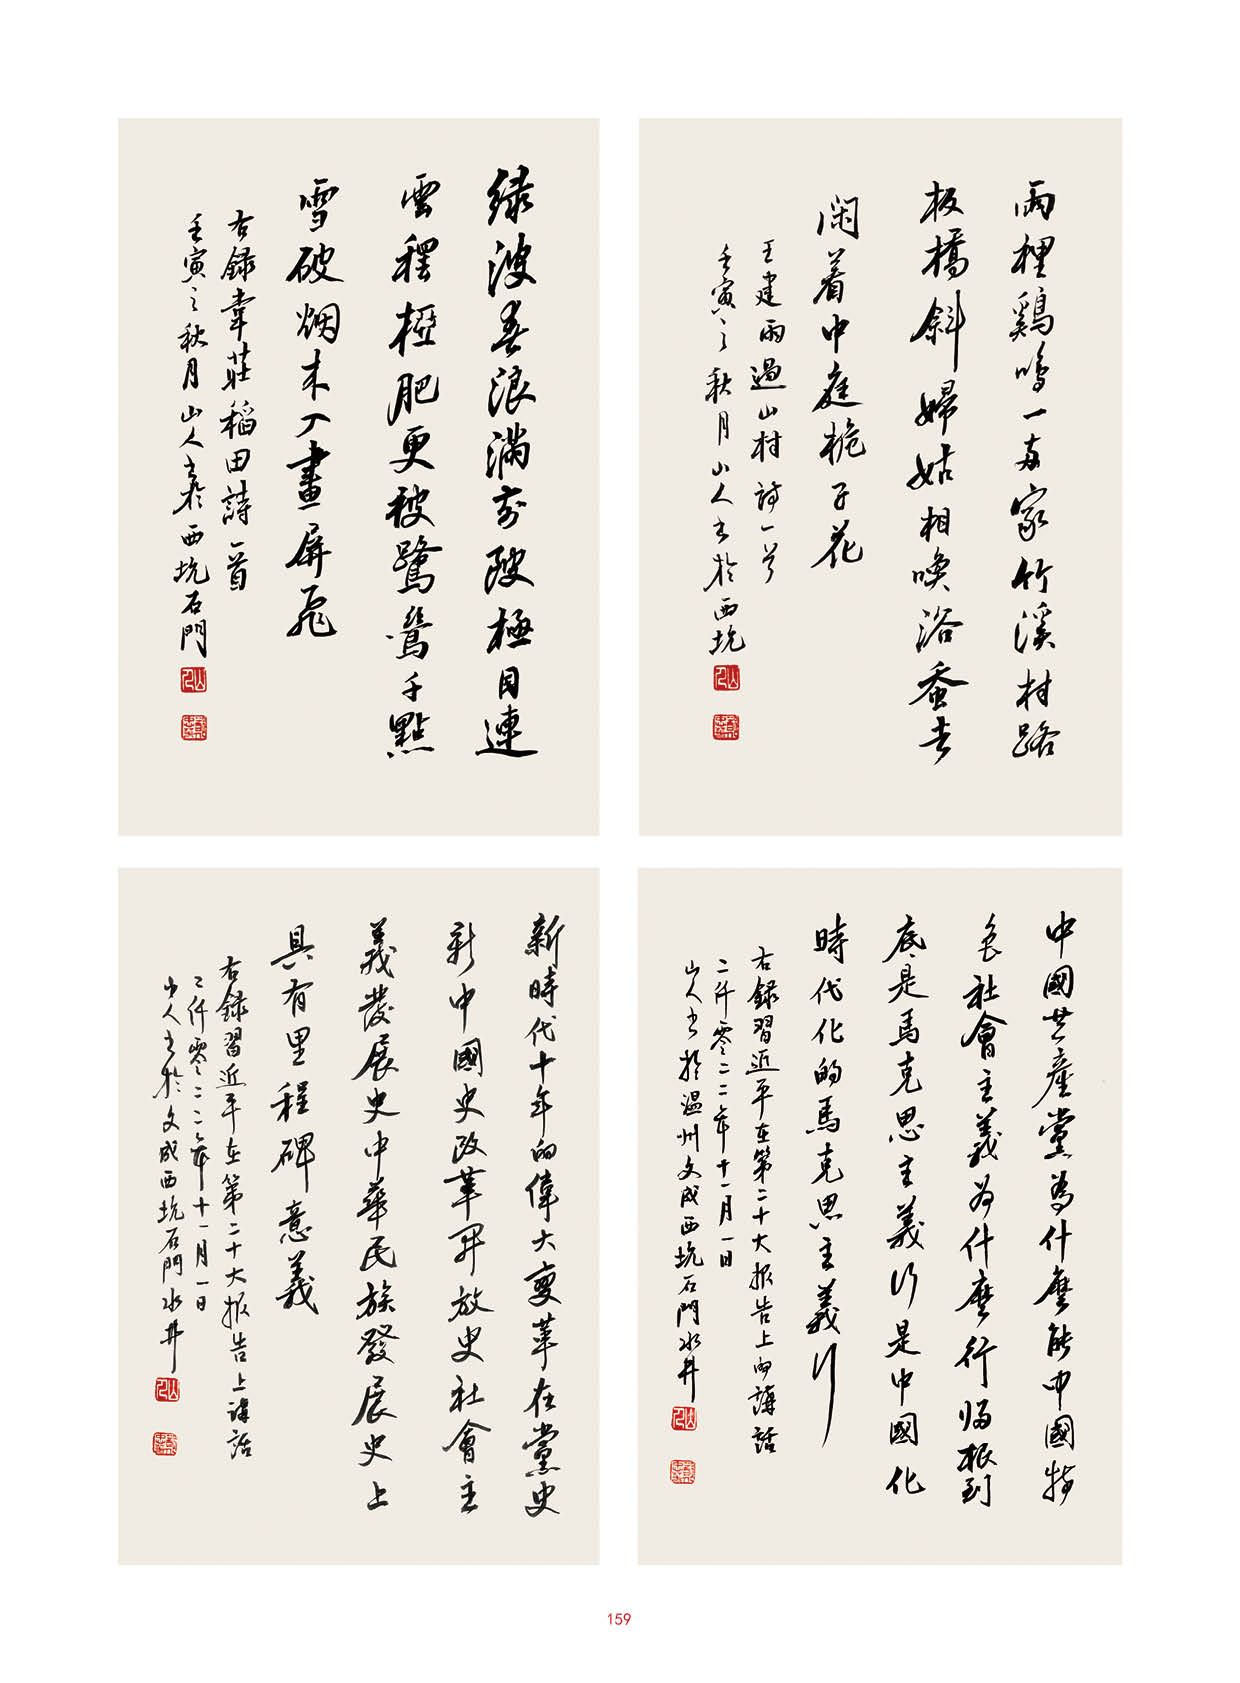 雨裡鷄鳴一兩家竹溪村路
板橋斜婦姑相喚浴蚕去
閑着中庭梔子花
王建雨過山村詩一首
壬寅之秋月山人書於西坑
绿波春浪滿前陂極目連
雲䆉稏肥更被鷺鷥千點
雪破烟來入畫屏飛
右録韋莊稻田詩一首
壬寅之秋月山人書於西坑石門
中國共產黨為什麼能中國特
色社會主義为什麼行归根到
底是馬克思主義行是中國化
時代化的馬克思主義行
右録習近平在第二十大报告上的講話
二仟零二二年十一月一日
山人书於温州文成西坑石門水井
新時代十年的偉大變革在黨史
新中國史改革開放史社會主
義發展史中華民族發展史上
具有里程碑意義
右録習近平在第二十大报告上講話
二仟零二二年十一月一日
山人书於文成西坑石門水井
159